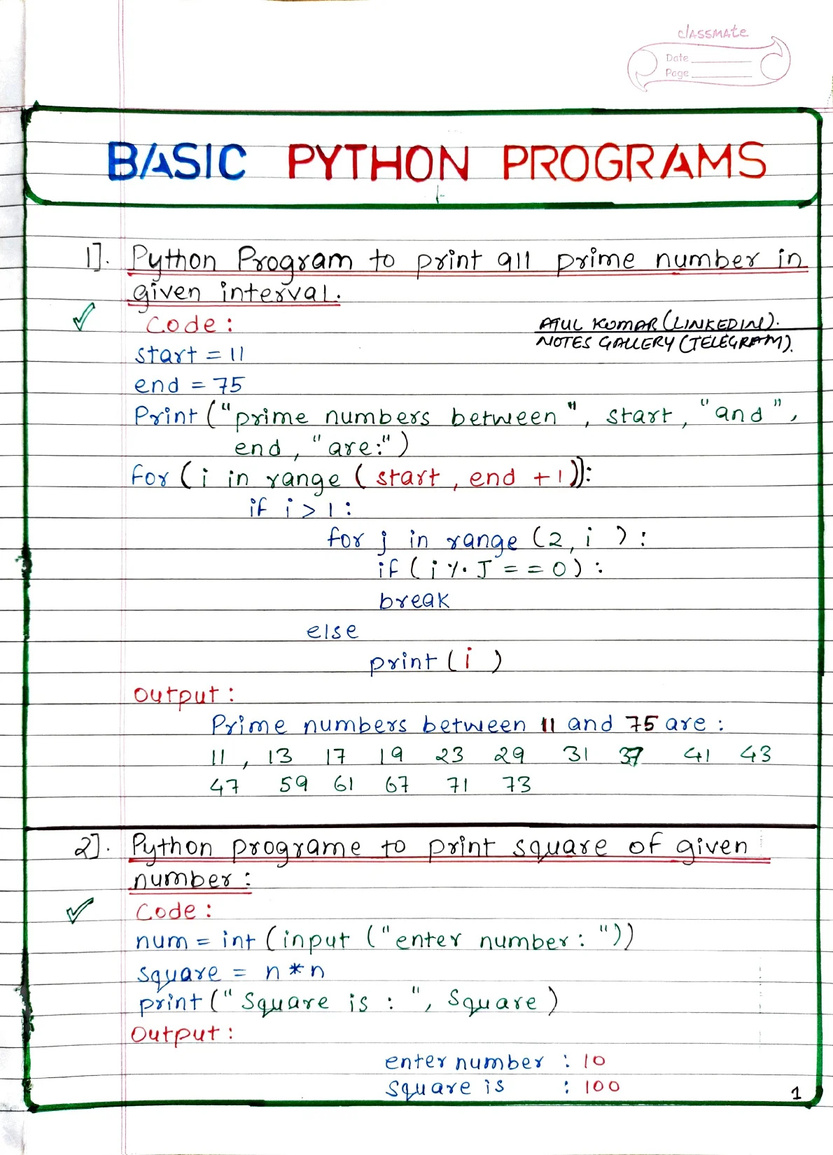 classmate
Date
Page
BASIC PYTHON PROGRAMS
1]. Python Program to print all prime number in
given interval.
Code :
ATUL KUMAR (LINKEDIN).
NOTES GALLERY (TELEGRAM).
start = 11
end = 75
Print ("prime numbers between", start, "and",
end, "are:")
For (i in range (start, end +1)):
if i > 1:
for j in range (2, i ) :
if (i % J == 0) :
break
else
print (i )
Output :
Prime numbers between 11 and 75 are :
11 , 13 17 19 23 29 31 37 41 43
47 59 61 67 71 73
2]. Python programe to print square of given
number :
Code :
num = int (input ("enter number : "))
square = n * n
print (" Square is : ", Square )
Output :
enter number : 10
square is : 100
1